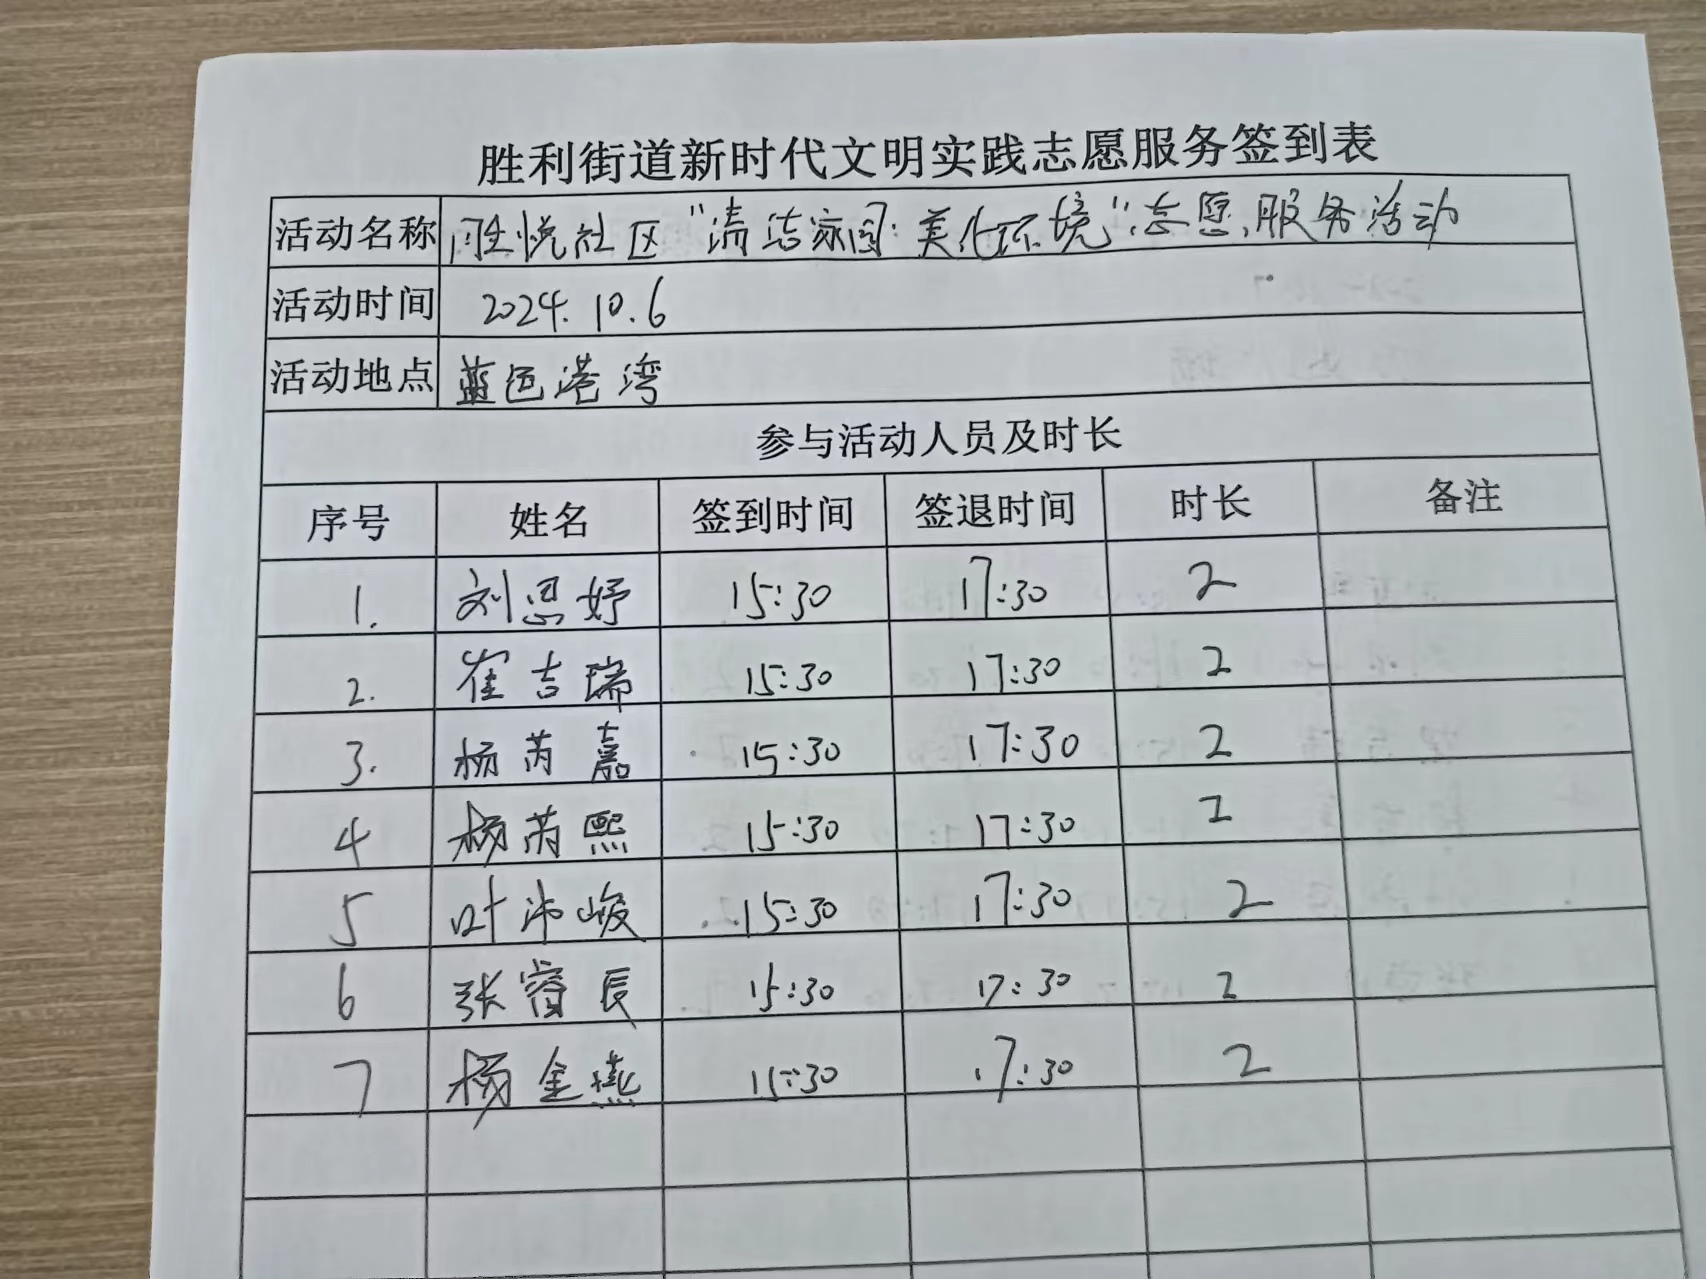 胜利街道新时代文明实践志愿服务签到表
活动名称 胜悦社区“清洁家园·美化环境”志愿服务活动
活动时间 2024.10.6
活动地点 蓝色港湾
参与活动人员及时长
序号 姓名 签到时间 签退时间 时长 备注
1. 刘思妤 15:30 17:30 2
2. 崔吉瑞 15:30 17:30 2
3. 杨芮嘉 15:30 17:30 2
4 杨芮熙 15:30 17:30 2
5 叶沛峻 15:30 17:30 2
6 张睿辰 15:30 17:30 2
7 杨金燕 15:30 17:30 2